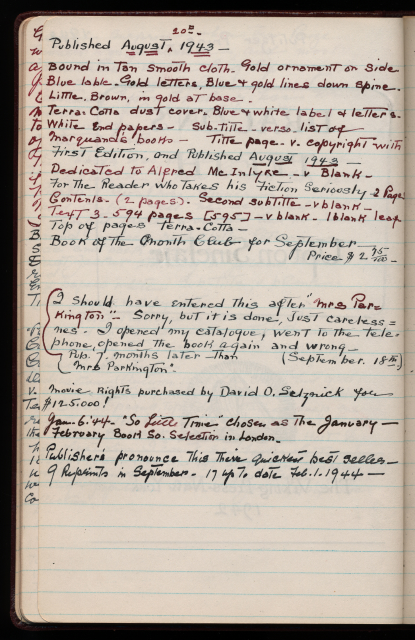 20th
Published August, 1943 —
Bound in Tan smooth cloth. Gold ornament on side
Blue lable. Gold letters, Blue & gold lines down spine.
Little. Brown, in gold at base.
Terra. Cotta dust cover. Blue & white label & letters.
White End papers - Sub. Title - verso. list of
Marquand's books - Title page. v. copyright with
First Edition, and Published August 1943 —
Dedicated to Alfred McIntyre - v Blank -
For the Reader who takes his Fiction Seriously 2 Page
Contents. (2 pages). Second subtitle - v blank -
Text 3 - 594 pages [595] - v blank - 1 blank leaf
Top of pages Terra-Cotta -
Book of the Month Club for September
Price $2 75/100 -
I should have entered this after "Mrs Par-
kington" - Sorry, but it is done, Just careless =
nes - I opened my catalogue, went to the Tele-
phone, opened the book again and wrong -
Pub. 7. months later than (September. 18th)
"Mrs Parkington".
Movie Rights purchased by David O. Selznick for
$125.000!
Jan. 6. '44 - "So Little Time" chosen as the January -
February Book So. Selection in London.
Publishers pronounce this their quickest best seller -
9 Reprints in September. 17 up to date Feb. 1. 1944 —